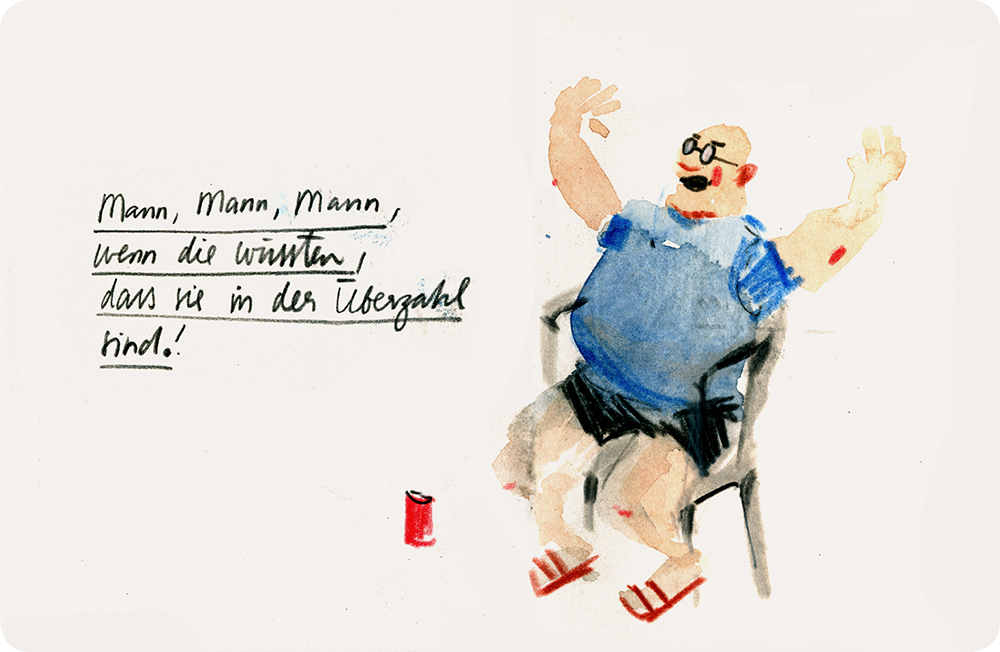 Mann, Mann, Mann,
wenn die wüssten,
dass sie in der Überzahl
sind.!